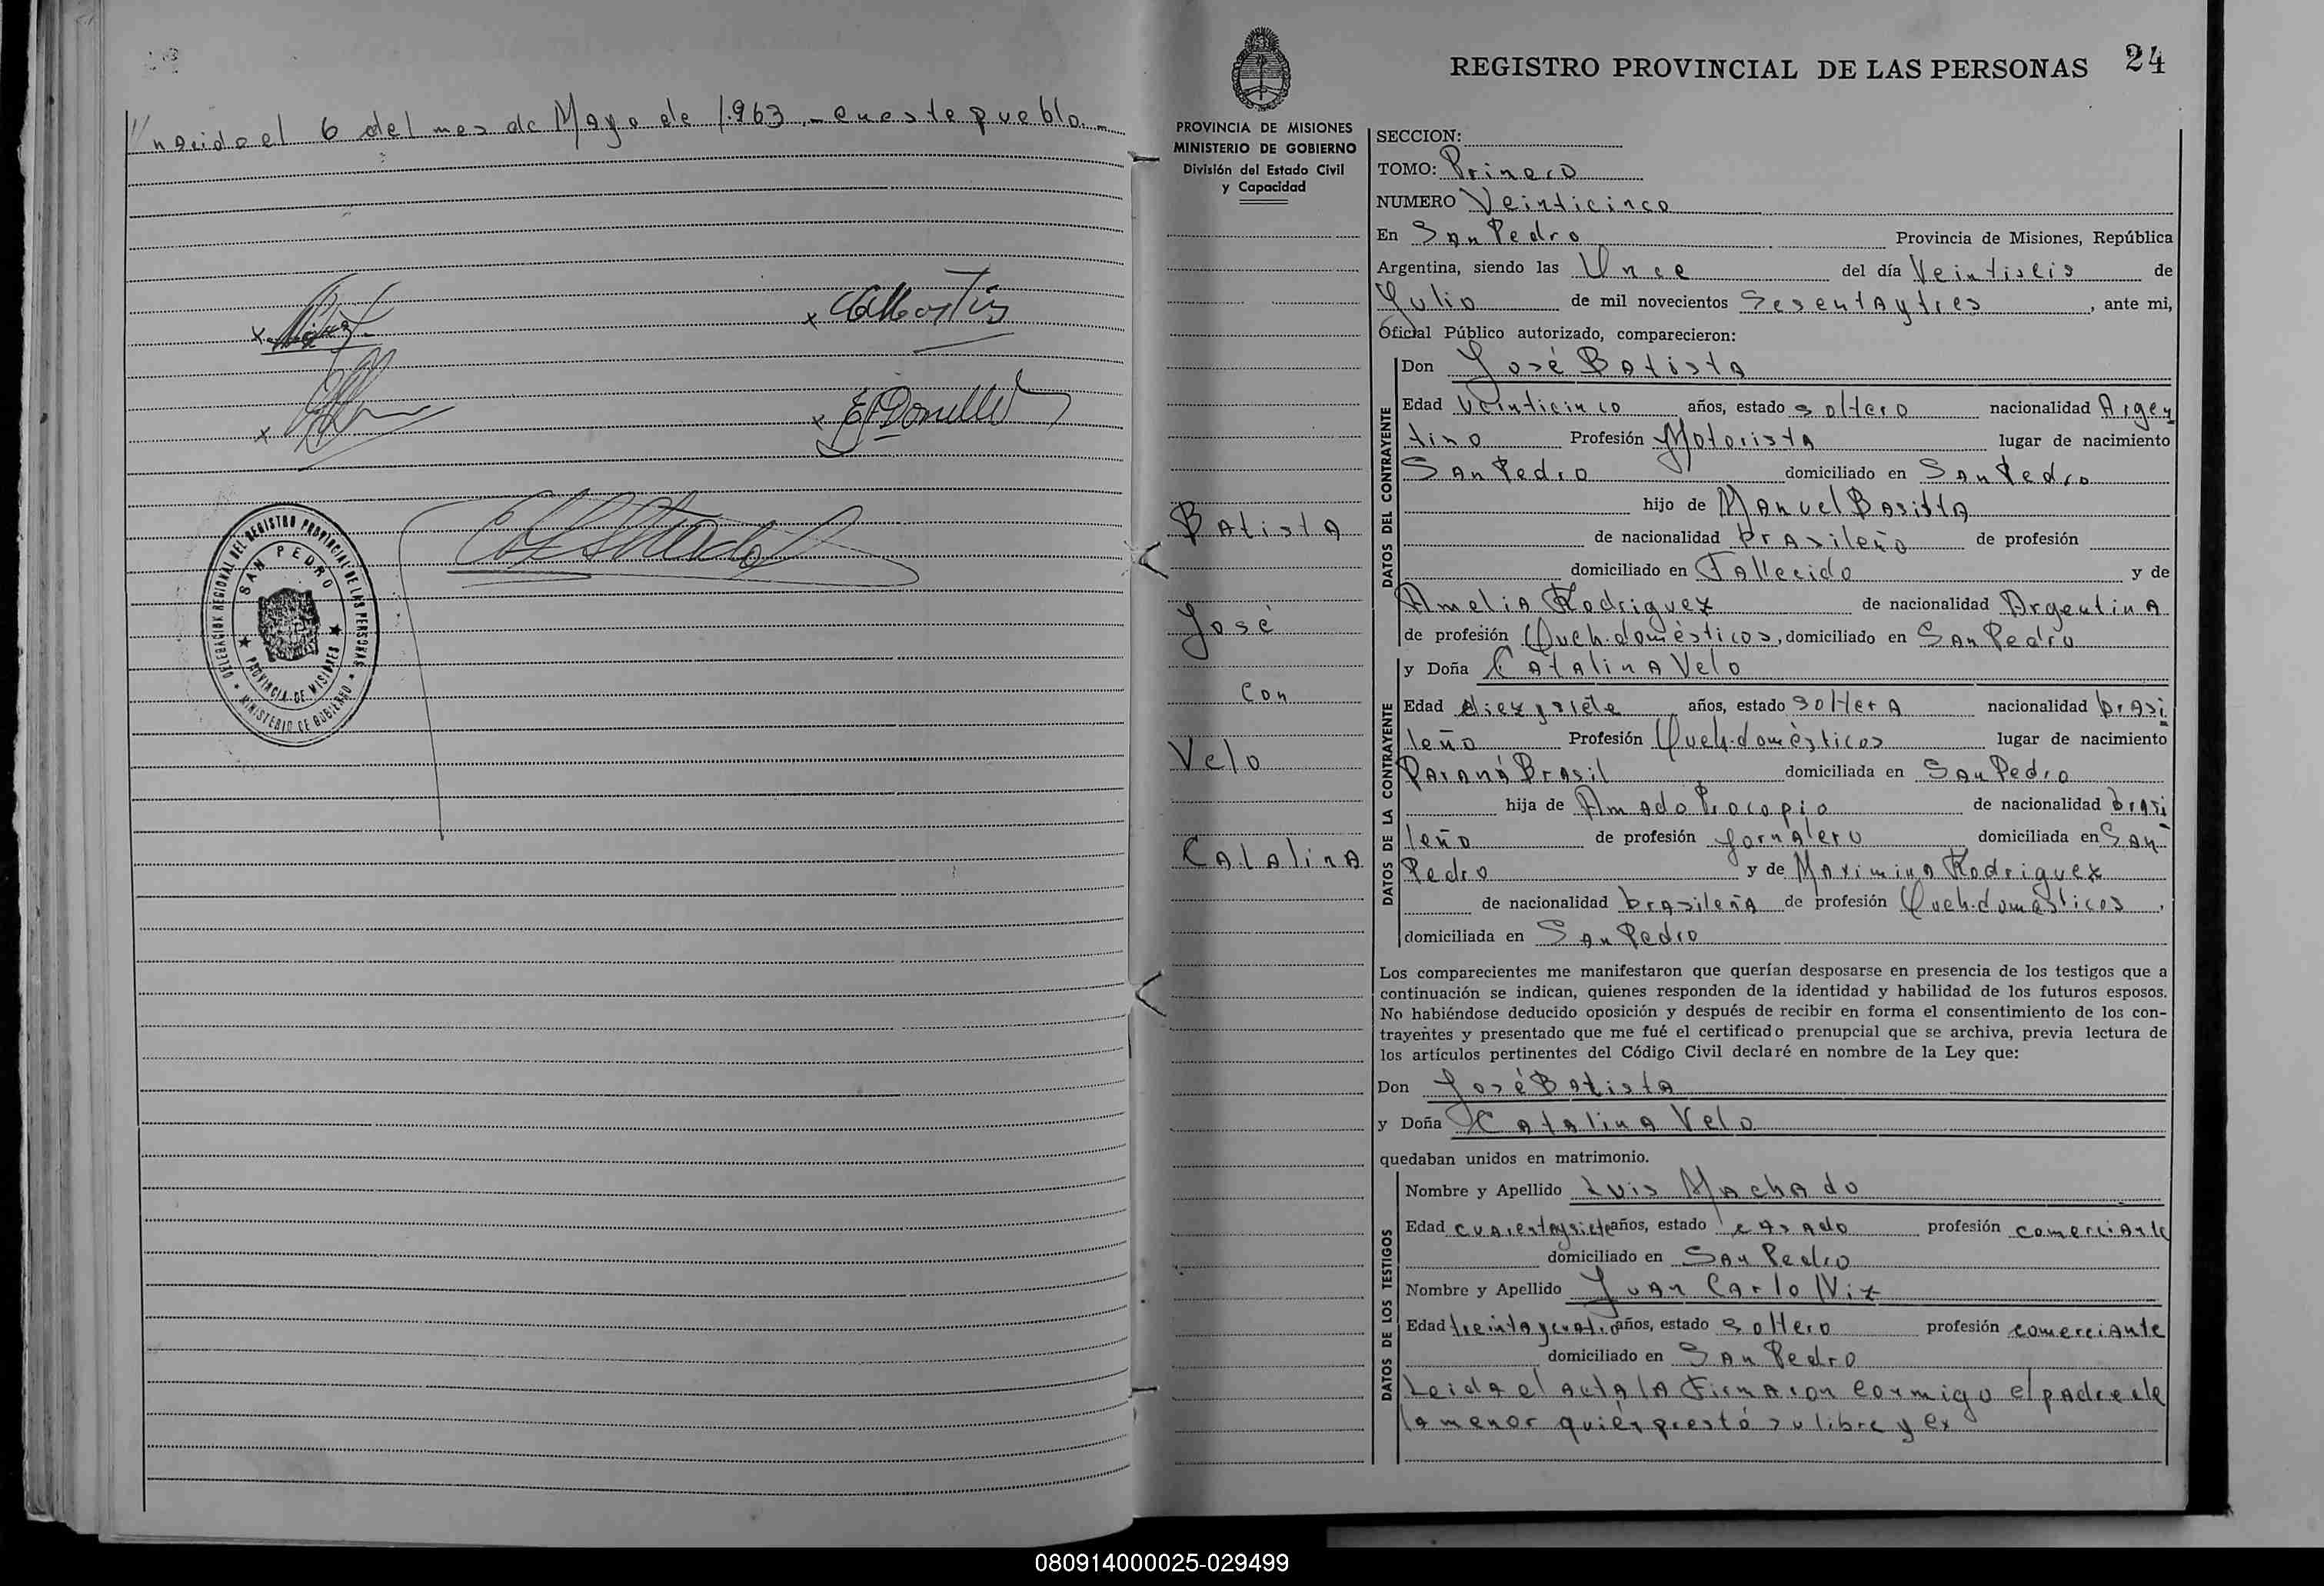 // nacido el 6 del mes de Mayo de 1.963.- en este pueblo.-
DELEGACION REGIONAL DEL REGISTRO PROVINCIAL DE LAS PERSONAS
SAN PEDRO
PROVINCIA DE MISIONES
MINISTERIO DE GOBIERNO
REGISTRO PROVINCIAL DE LAS PERSONAS 24
PROVINCIA DE MISIONES
MINISTERIO DE GOBIERNO
División del Estado Civil
y Capacidad
Batista
José
con
Velo
Catalina
SECCION:
TOMO: Primero
NUMERO Veinticinco
En San Pedro Provincia de Misiones, República
Argentina, siendo las Once del día Veintiseis de
Julio de mil novecientos Sesenta y tres, ante mi,
Oficial Público autorizado, comparecieron:
DATOS DEL CONTRAYENTE
Don José Batista
Edad Veinticinco años, estado soltero nacionalidad Argen
tino Profesión Motorista lugar de nacimiento
San Pedro domiciliado en San Pedro
hijo de Manuel Basitta
de nacionalidad brasileño de profesión
domiciliado en Fallecido y de
Amelia Rodriguez de nacionalidad Argentina
de profesión Queh. domèsticos, domiciliado en San Pedro
DATOS DE LA CONTRAYENTE
y Doña Catalina Velo
Edad diez y siete años, estado soltera nacionalidad brasi
leño Profesión Queh. domèsticos lugar de nacimiento
Paraná Brasil domiciliada en San Pedro
hija de Amado Procopio de nacionalidad brasi
leño de profesión Jornalero domiciliada en San
Pedro y de Maximina Rodriguez
de nacionalidad brasileña de profesión Queh. domésticos,
domiciliada en San Pedro
Los comparecientes me manifestaron que querían desposarse en presencia de los testigos que a
continuación se indican, quienes responden de la identidad y habilidad de los futuros esposos.
No habiéndose deducido oposición y después de recibir en forma el consentimiento de los con-
trayentes y presentado que me fué el certificado prenupcial que se archiva, previa lectura de
los artículos pertinentes del Código Civil declaré en nombre de la Ley que:
Don José Batista
y Doña Catalina Velo
quedaban unidos en matrimonio.
DATOS DE LOS TESTIGOS
Nombre y Apellido Luis Machado
Edad cuarenta y siete años, estado casado profesión comerciante
domiciliado en San Pedro
Nombre y Apellido Juan Carlo
Edad treinta y cuatro años, estado soltero profesión comerciante
domiciliado en San Pedro
Leida el acta la Firmaron conmigo el padre de
la menor quién prestó su libre y ex
080914000025-029499